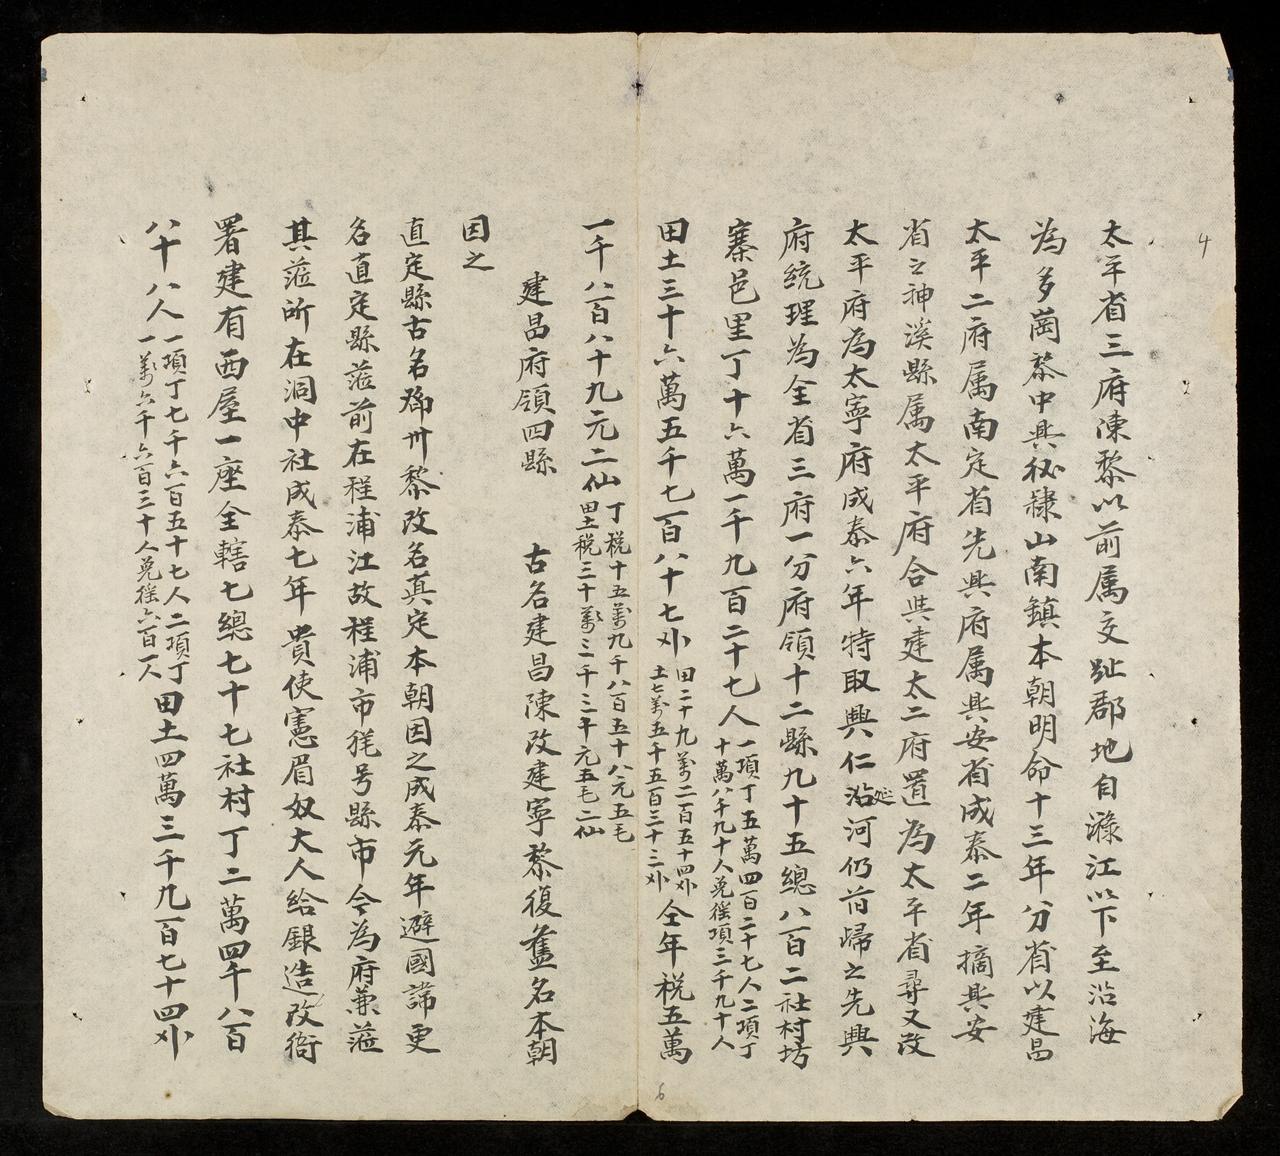 4
太平省三府陳黎以前属交趾郡地自淥江以下至沿海
為多崗黎中興初隸山南鎮本朝明命十三年分省以建昌
太平二府属南定省先興府属興安省成泰二年摘興安
省之神溪縣属太平府合與建太二府置為太平省尋又改
太平府為太寧府成泰六年特取興仁沿河仍前歸之先興
延
府統理為全省三府一分府領十二縣九十五總八百二社村坊
寨邑里丁十六萬一千九百二十七人一項丁五萬四百二十七人二項丁十萬八千九十人免徭項三千九十人
田土三十六萬五千七百八十七外田二十九萬二百五十四外土七萬五千五百三十三外全年税五萬
一千八百八十九元二仙丁税十五萬九千八百五十八元五毛田土税三十萬三千三十元五毛二仙
建昌府領四縣 古名建昌陳改建寧黎復舊名本朝
因之
直定縣古名 州黎改名真定本朝因之成泰元年避國諱更
名直定縣蒞前在程浦江故程浦市 号縣市今為府兼蒞
其蒞所在洞中社成泰七年貴使憲眉奴大人給銀造改衙
署建有西屋一座全轄七總七十七社村丁二萬四千八百
八十八人一項丁七千六百五十七人二項丁一萬六千六百三十人免徭六百一人田土四萬三千九百七十四外
6